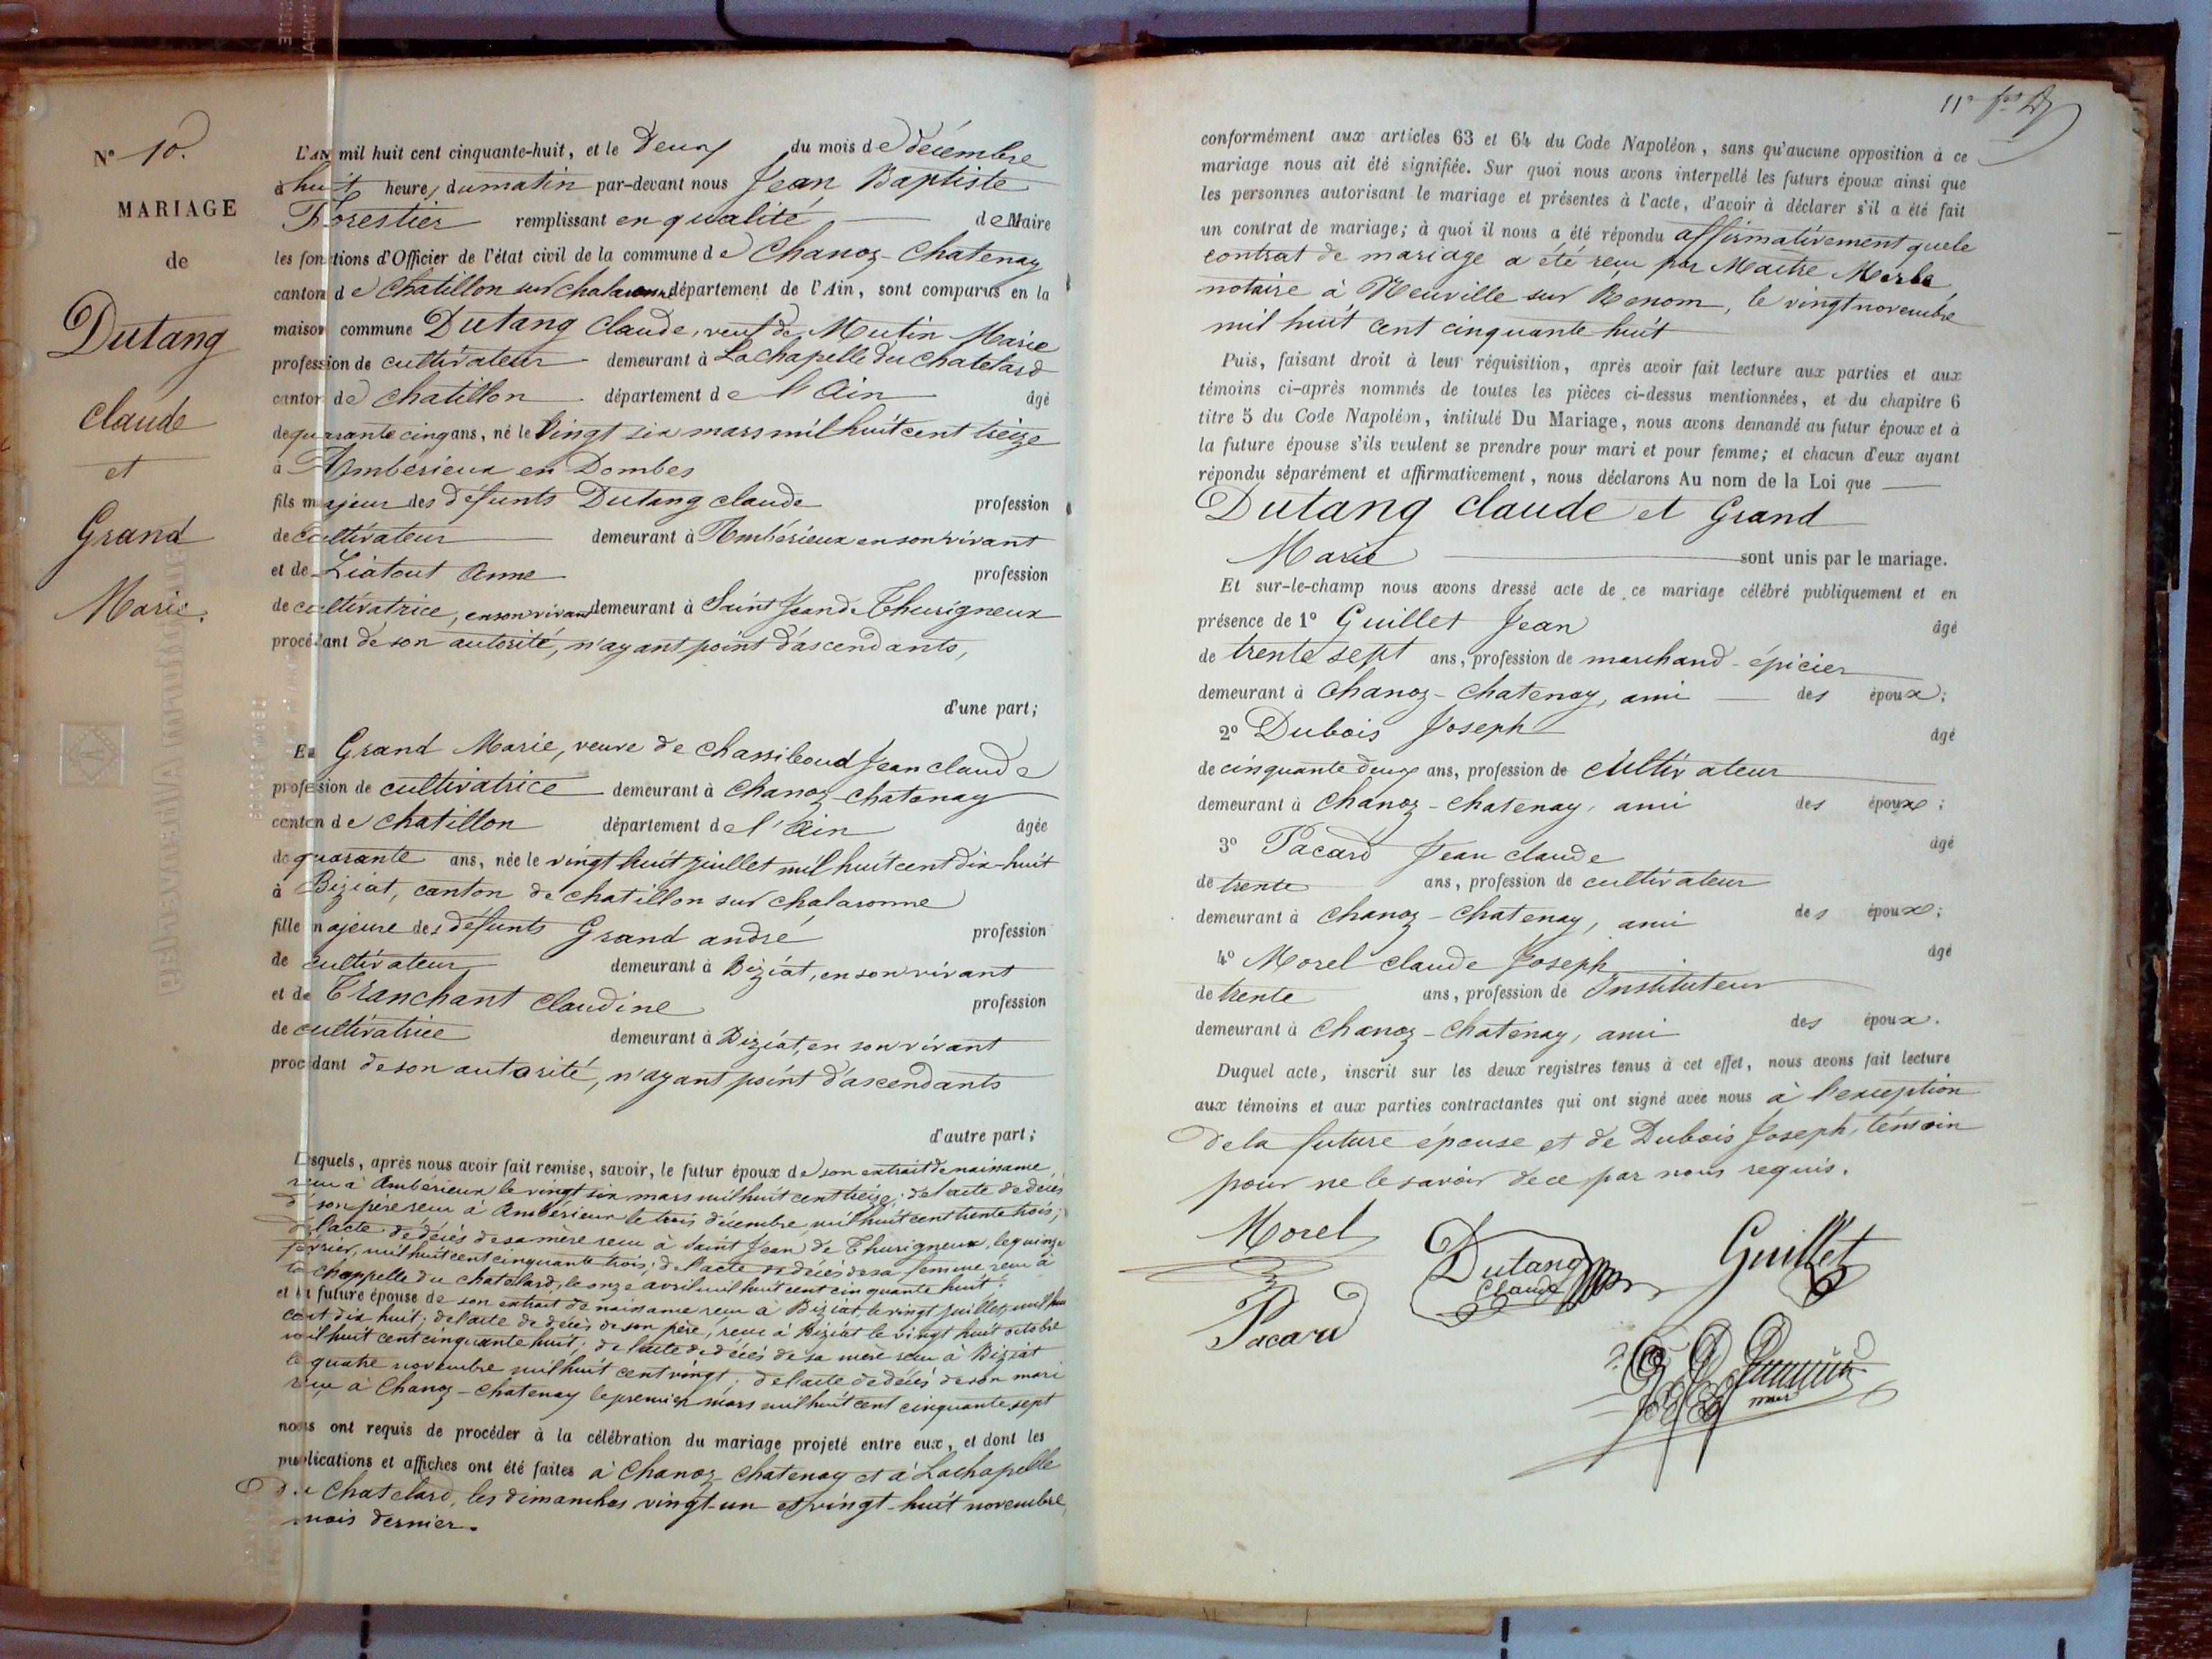 N° 10.
MARIAGE
de
Dutang
Claude
et
Grand
Marie.
L'AN mil huit cent cinquante-huit, et le Deux du mois de décembre
à huit heures du matin par-devant nous Jean Baptiste
Forestier remplissant en qualité de Maire
les fonctions d'Officier de l'état civil de la commune de Chanoz-Chatenay
canton de Chatillon sur chalaronne département de l'Ain, sont comparus en la
maison commune Dutang Claude, veuf de Mutin Marie
profession de cultivateur demeurant à Lachapelle du Chatelard
canton de Chatillon département de l'Ain âgé
de quarante cinq ans, né le Vingt six mars mil huit cent treize
à Ambérieux en Dombes
fils majeur des défunts Dutang claude profession
de cultivateur demeurant à Ambérieux en son vivant
et de Liatout Anne profession
de cultivatrice, en son vivant demeurant à Saint Jean de Thurigneux
procédant de son autorité, n'ayant point d'ascendants,
d'une part;
Et Grand Marie, veuve de Chassiboud Jean claude
profession de cultivatrice demeurant à Chanoz-Chatenay
canton de Chatillon département de l'Ain âgée
de quarante ans, née le vingt huit juillet mil huit cent dix-huit
à Biziat, canton de Chatillon sur Chalaronne
fille majeure des défunts Grand andré profession
de cultivateur demeurant à Biziat, en son vivant
et de Tranchant Claudine profession
de cultivatrice demeurant à Biziat, en son vivant
procédant de son autorité, n'ayant point d'ascendants
d'autre part;
Lesquels, après nous avoir fait remise, savoir, le futur époux de son extrait de naissance,
reçu à Ambérieux le vingt six mars mil huit cent treize; de l'acte de décès
de son père reçu à Ambérieux le trois décembre mil huit cent trente trois;
de l'acte de décès de sa mère reçu à Saint Jean de Thurigneux, le quinze
février, mil huit cent cinquante trois; de l'acte de décès de sa femme reçu à
la chappelle du chatelard, le onze avril mil huit cent cinquante huit;
et la future épouse de son extrait de naissance reçu à Biziat, le vingt juillet, mil huit
cent dix huit; de l'acte de décès de son père, reçu à Biziat le vingt huit octobre
mil huit cent cinquante huit; de l'acte de décès de sa mère reçu à Biziat
le quatre novembre mil huit cent vingt; de l'acte de décès de son mari
reçu à Chanoz-Chatenay le premier mars mil huit cent cinquante sept
nous ont requis de procéder à la célébration du mariage projeté entre eux, et dont les
publications et affiches ont été faites à Chanoz-Chatenay et à Lachapelle
du Chatelard, les dimanches vingt-un et vingt-huit novembre,
mois dernier.
conformément aux articles 63 et 64 du Code Napoléon, sans qu'aucune opposition à ce
mariage nous ait été signifiée. Sur quoi nous avons interpellé les futurs époux ainsi que
les personnes autorisant le mariage et présentes à l'acte, d'avoir à déclarer s'il a été fait
un contrat de mariage; à quoi il nous a été répondu affirmativement que le
contrat de mariage a été reçu par Maitre Merle,
notaire à Neuville sur Renom, le vingt novembre
mil huit cent cinquante huit
Puis, faisant droit à leur réquisition, après avoir fait lecture aux parties et aux
témoins ci-après nommés de toutes les pièces ci-dessus mentionnées, et du chapitre 6
titre 5 du Code Napoléon, intitulé Du Mariage, nous avons demandé au futur époux et à
la future épouse s'ils veulent se prendre pour mari et pour femme; et chacun d'eux ayant
répondu séparément et affirmativement, nous déclarons Au nom de la Loi que
Dutang Claude et Grand
Marie sont unis par le mariage.
Et sur-le-champ nous avons dressé acte de ce mariage célébré publiquement et en
présence de 1° Guillet Jean âgé
de trente sept ans, profession de marchand-épicier
demeurant à Chanoz-Chatenay, ami des époux;
2° Dubois Joseph âgé
de cinquante deux ans, profession de cultivateur
demeurant à Chanoz-Chatenay, ami des époux;
3° Pacard Jean claude âgé
de trente ans, profession de cultivateur
demeurant à Chanoz-Chatenay, ami des époux;
4° Morel claude Joseph âgé
de trente ans, profession de Instituteur
demeurant à Chanoz-Chatenay, ami des époux.
Duquel acte, inscrit sur les deux registres tenus à cet effet, nous avons fait lecture
aux témoins et aux parties contractantes qui ont signé avec nous à l'exception
de la future épouse et de Dubois Joseph, témoin
pour ne le savoir de ce par nous requis.
Morel
Dutang
Claude
Guillet
Pacard
maire